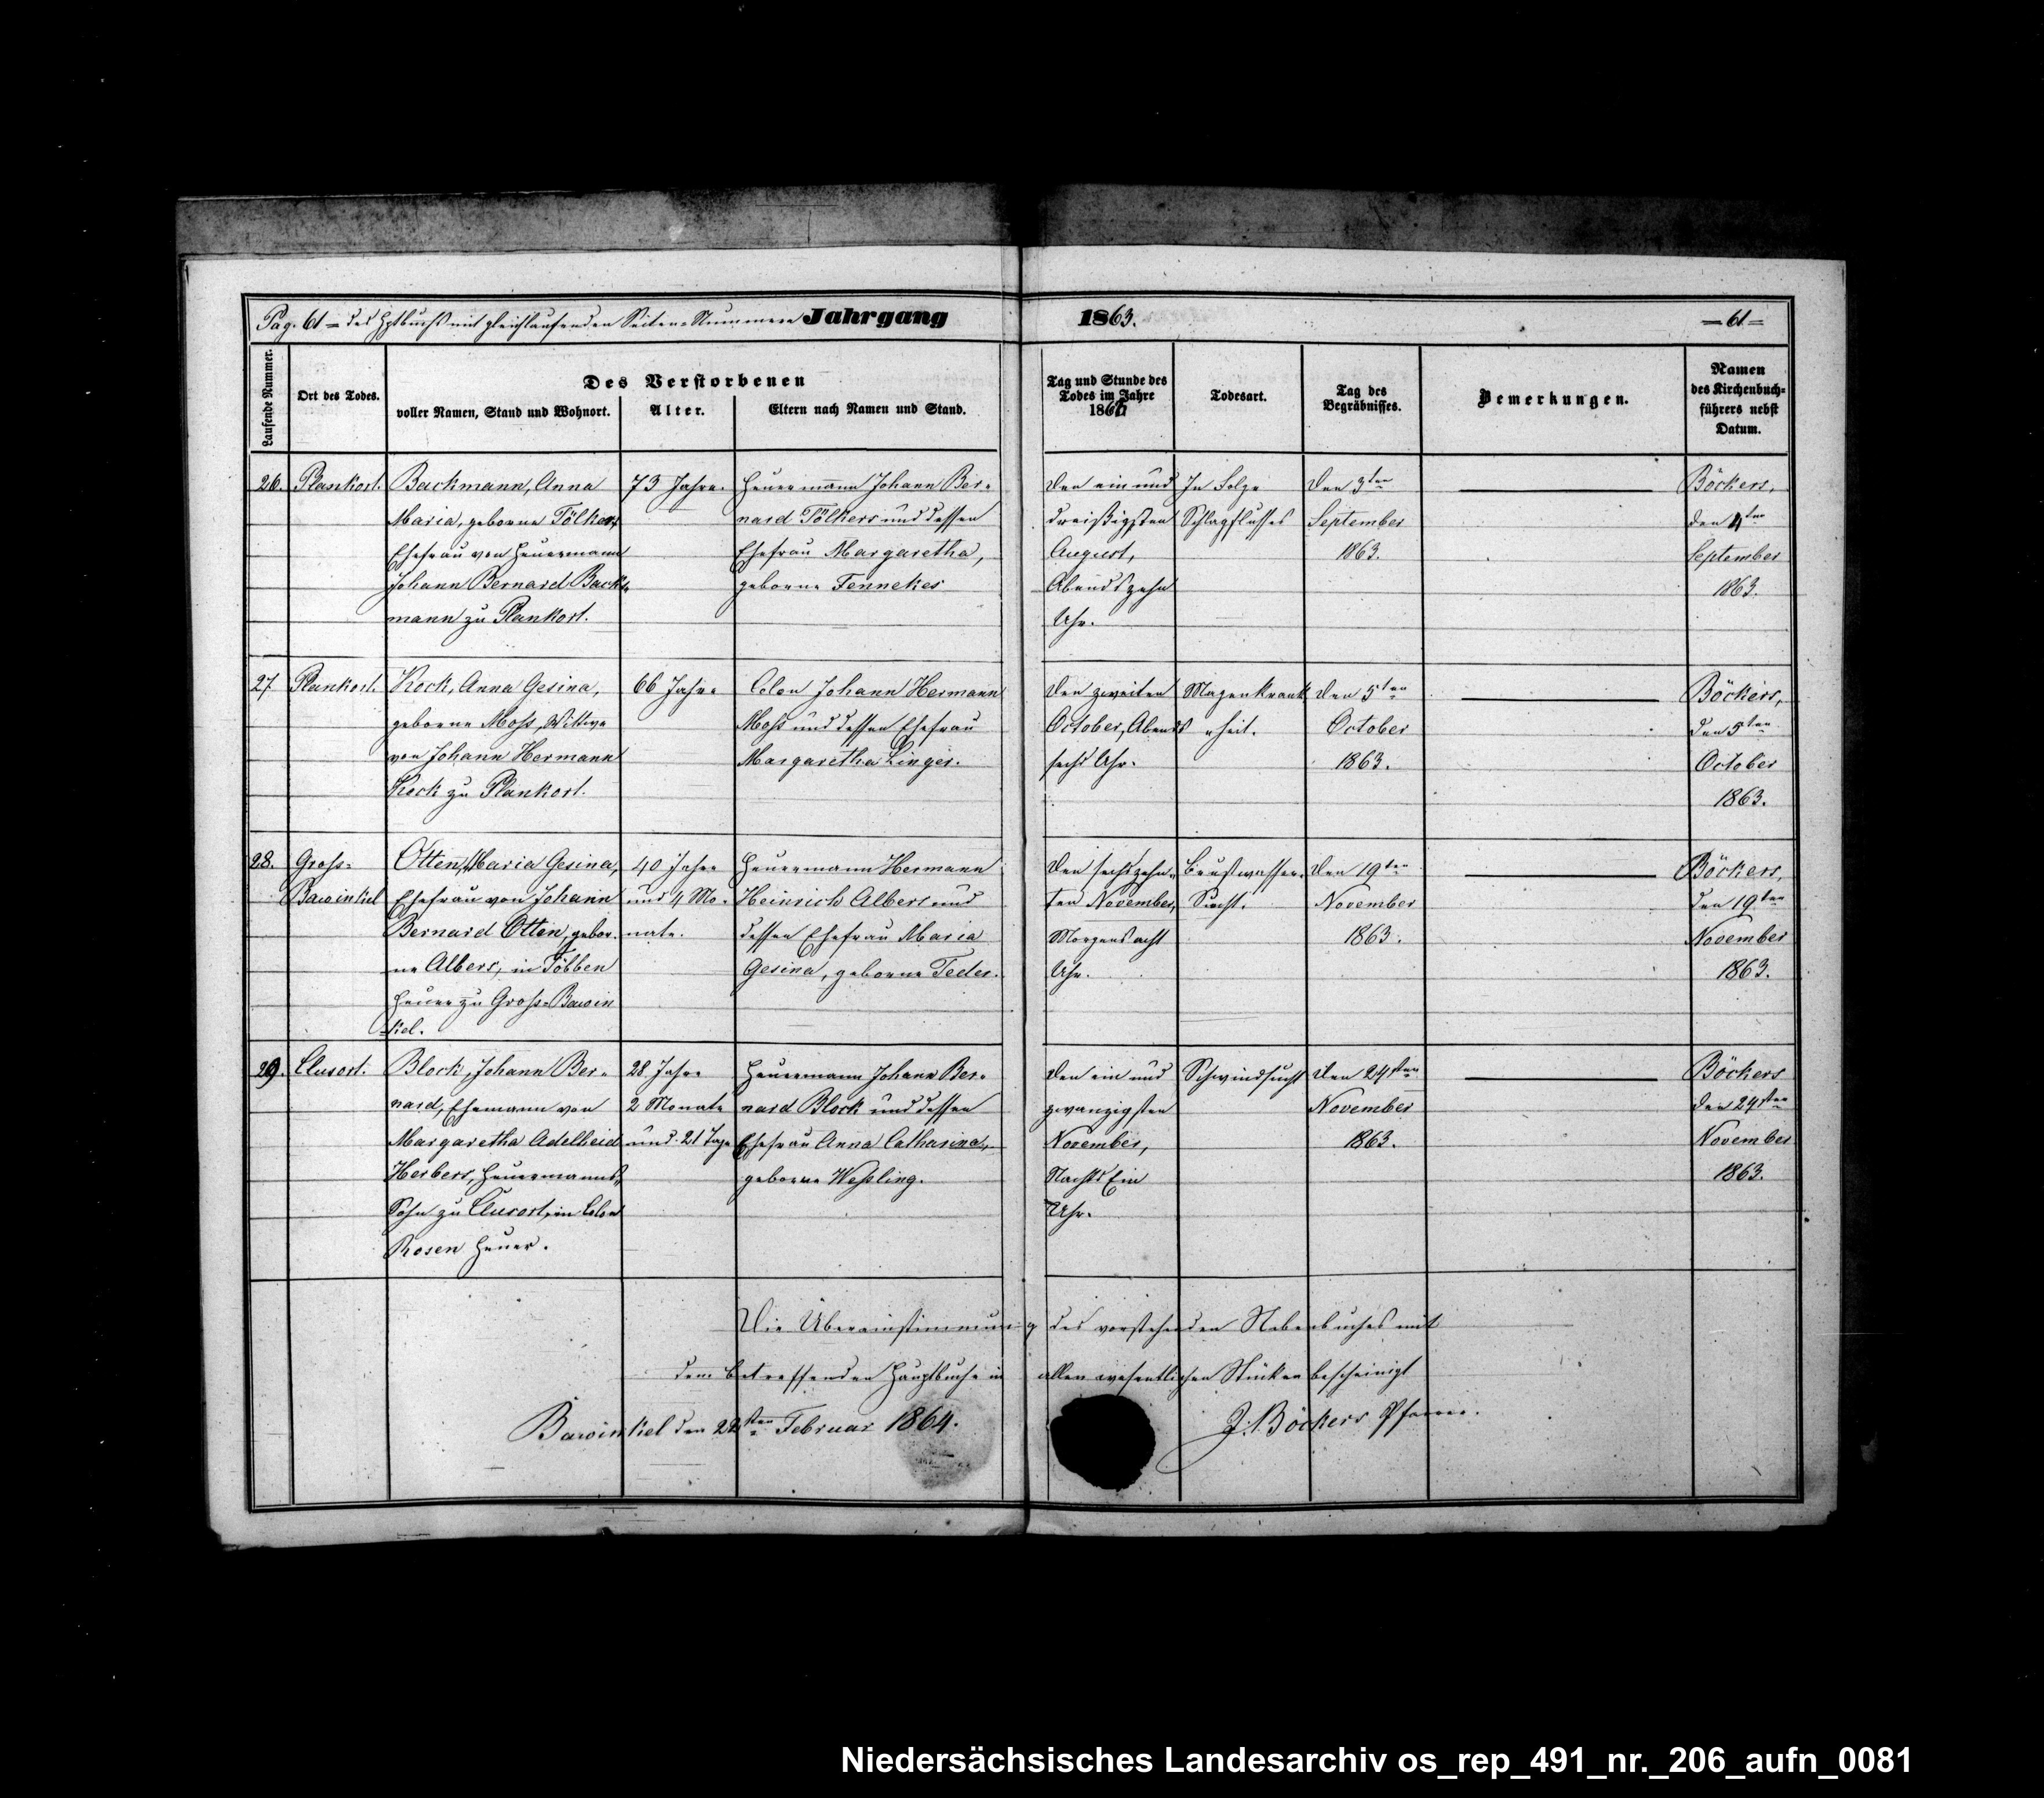 Pag. 61 = des Hptbuchs mit gleichlaufenden Seiten-Nummern Jahrgang 1863. = 61 =
Laufende Nummer.
Ort des Todes.
Des Verstorbenen
voller Namen, Stand und Wohnort.
Alter.
Eltern nach Namen und Stand.
Tag und Stunde des
Todes im Jahre
186
Todesart.
Tag des
Begräbnisses.
Bemerkungen.
Namen
des Kirchenbuch-
führers nebst
Datum.
26.
Plankort.
Backmann, Anna
Maria, geborne Tölkers,
Ehefrau von Heuermann
Johann Bernard Back-
mann zu Plankort.
73 Jahre.
Heuermann Johann Ber-
nard Tölkers und dessen
Ehefrau Margaretha,
geborne Fennekes
Den ein und
dreißigsten
August,
Abends zehn
Uhr.
In Folge
Schlagflusses
Den 3ten
September
1863.
Böckers,
den 4ten
September
1863.
27
Plankort.
Kock, Anna Gesina,
geborne Moß, Wittwe
von Johann Hermann
Kock zu Plankort.
66 Jahre
Colon Johann Hermann
Moß und dessen Ehefrau
Margaretha Linger.
Den zweiten
October, Abends
sechs Uhr.
Magenkrank-
heit.
Den 5ten
October
1863.
Böckers,
den 5ten
October
1863.
28.
Groß-
Bawinkel
Otten, Maria Gesina,
Ehefrau von Johann
Bernard Otten, gebor-
ne Albers, in Többen
Heuer zu Groß-Bawin
-kel.
40 Jahre
und 4 Mo-
nate.
Heuermann Hermann
Heinrich Albers und
dessen Ehefrau Maria
Gesina, geborne Feder.
Den sechszehn-
ten November,
Morgens acht
Uhr.
Brustwasser-
Sucht.
Den 19ten
November
1863.
Böckers,
den 19ten
November
1863.
29.
Clusort.
Block, Johann Ber-
nard, Ehemann von
Margaretha Adelheid
Herbers, Heuermanns-
Sohn zu Clusort, in Colon
Rosen Heuer.
28 Jahre
2 Monate
und 21 Tage
Heuermann Johann Ber-
nard Block und dessen
Ehefrau Anna Catharina,
geborne Weßling.
Den ein und
zwanzigsten
November,
Nachts Ein
Uhr.
Schwindsucht
Den 24sten
November
1863.
Böckers
den 24sten
November
1863.
Die Übereinstimmung des vorstehenden Nebenbuches mit
dem betreffenden Hauptbuche in allen wesentlichen Stücken bescheinigt
Bawinkel den 22sten Februar 1864.
J. Böckers Pfarrer.
Niedersächsisches Landesarchiv os_rep_491_nr._206_aufn_0081